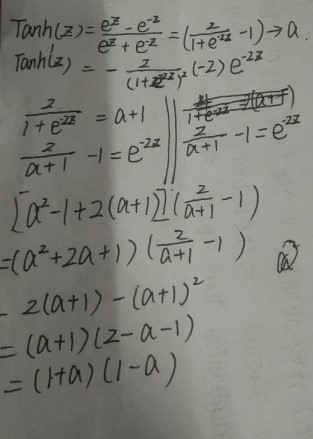 Tanh(z) = (e^z - e^-z)/(e^z + e^-z) = (2/(1+e^-2z) - 1) → a.
Tanh'(z) = - 2/(1+e^-2z)^2 (-2) e^-2z
2/(1+e^-2z) = a+1
2/(a+1) - 1 = e^-2z
2/(a+1) - 1 = e^-2z
[a^2-1+2(a+1)] (2/(a+1) - 1)
=(a^2+2a+1) (2/(a+1) - 1)
- 2(a+1) - (a+1)^2
= (a+1) (2-a-1)
= (1+a) (1-a)